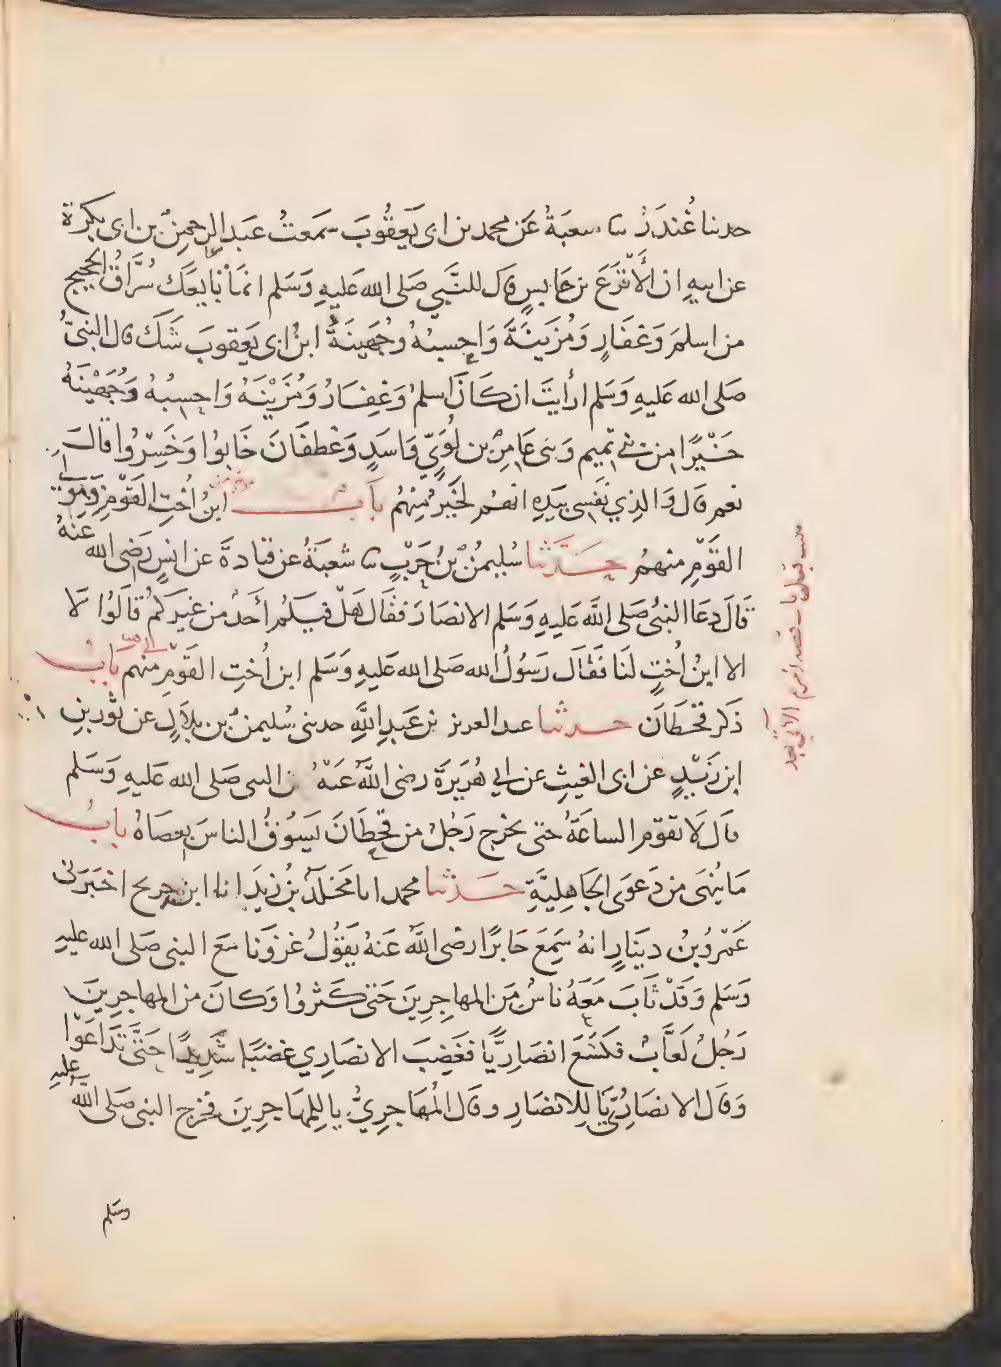 حدثنا غُندَرٌ ثنا شعبَةُ عَن محمد بن ابى يَعقُوبَ سَمَعتُ عَبدَ الرحمنِ بن ابى بكرة
عن ابيهِ ان الأَقرَعَ بن حَابسٍ قال للنَّبي صَلى الله عَليهِ وَسَلم انمَا بَايعَكَ سُرَّاقُ الحجيج
من اسلمَ وَغفَارٍ وَمُزَينَةَ وَاحسِبهُ وجُهَينَةَ ابنُ ابى يَعقوبَ شَكَ قال النبىُّ
صَلى الله عَليهِ وَسَلم ارأيتَ ان كَانَ اسلمُ وَغِفَارُ وَمُزَيْنَةُ وَاحسِبُهُ وَجُهَيْنَةُ
خَيْرًا من بنى تميم وَبنى عَامِرِ بن لُؤيّ وَاسَدٍ وَغطفَانَ خَابوُا وَخَسِرُوا قالَ
نعم قال وَالذِي نَفسى بيَدِهِ انهُم لخَيرٌ مِنهُم بَابُ ابنُ اُختِ القَوْمِ وَمَوْلَى
القَوْمِ منهُم حَدَثَنا سُليمنُ بنُ حَرْبٍ ثنا شعبَةُ عن قتادةَ عن انسٍ رَضى الله عَنهُ
قَالَ دعَا النبىُ صَلى الله عَليهِ وَسَلم الانصَارَ فقَال هَلْ فيكُم أحَدٌ من غيركُم قَالوُا لَا
الا ابنُ اُختٍ لنَا فَقَالَ رَسُولُ الله صَلى الله عَليهِ وَسَلم ابن اُختِ القَوْمِ منهم بَابُ
ذكر قحطَانَ حدثنا عبد العزيز بن عَبدِ اللهِ حدثنى سُليمنُ بن بلَالٍ عن ثوْرِ بنِ
ابن زَيْدٍ عن ابى الغيثِ عن ابي هُرَيرَةَ رضى اللهُ عَنْهُ عن النبى صَلى الله عَليهِ وَسَلم
قال لَا تقوْم الساعَةُ حَتى يخرج رَجُلٌ من قحطَانَ يَسوُقُ الناسَ بعصَاهُ بابُ
مَا يُنهَى من دَعوَى الجَاهِليَّةِ حدثنا محمد انا مَخلَدُ بنُ يزيدَ انا ابن جريج اخبَرَنى
عَمْرُو بْنُ دينَارٍ انهُ سَمِعَ جَابرًا رضى اللهُ عَنهُ يَقوُلُ غزَونا مَعَ النبى صَلى الله عَليهِ
وَسَلم وَقَدْ ثَابَ مَعَهُ ناسٌ مِنَ المهَاجِرِينَ حَتىَ كَثرُوا وَكانَ منَ المهَاجِرينَ
رَجُلٌ لَعَّابٌ فكَسَعَ انصَاريًّا فغَضِبَ الانصَارِي غضبًا شَديِدًا حَتَّى تدَاعَوْا
وَقَال الانصَارُيُّ يَا لِلانصَارِ وقال المُهَاجِرِيُّ يا لِلمهَاجِرينَ فخرج النبى صَلى اللهُ عليه
وسَلم